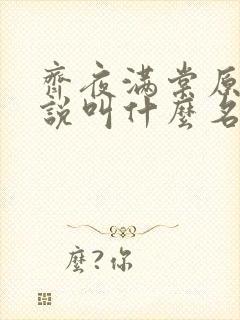 齊夜滿棠原
說叫什麼名
麼?你